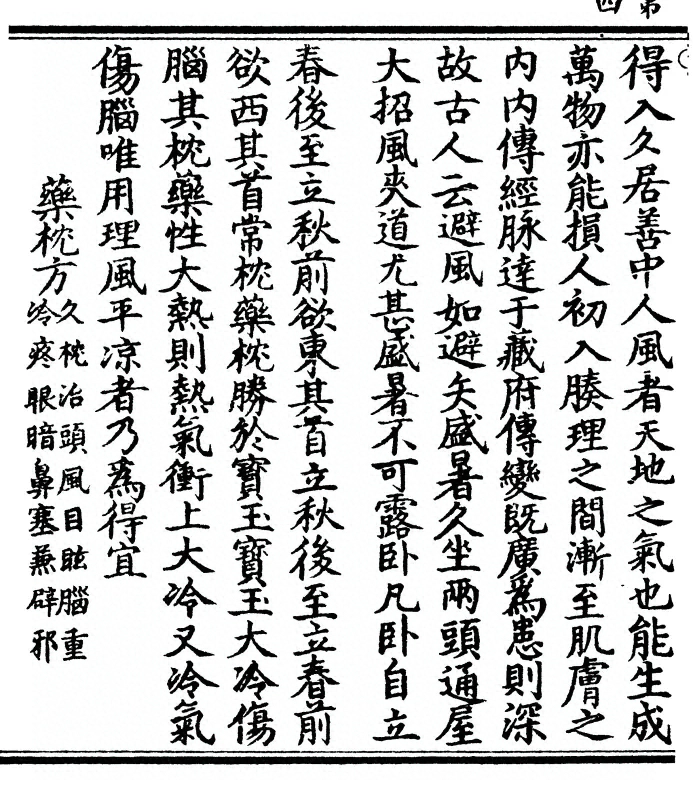 第
四
得入久居善中人風者天地之氣也能生成
萬物亦能損人初入腠理之間漸至肌膚之
内内傳經脉達于藏府傳變既廣爲患則深
故古人云避風如避矢盛暑久坐兩頭通屋
大招風夾道尤甚盛暑不可露卧凡卧自立
春後至立秋前欲東其首立秋後至立春前
欲西其首常枕藥枕勝於寶玉寶玉大冷傷
腦其枕藥性大熱則熱氣衝上大冷又冷氣
傷腦唯用理風平凉者乃爲得宜
藥枕方
久枕治頭風目眩腦重
冷疼眼暗鼻塞兼辟邪